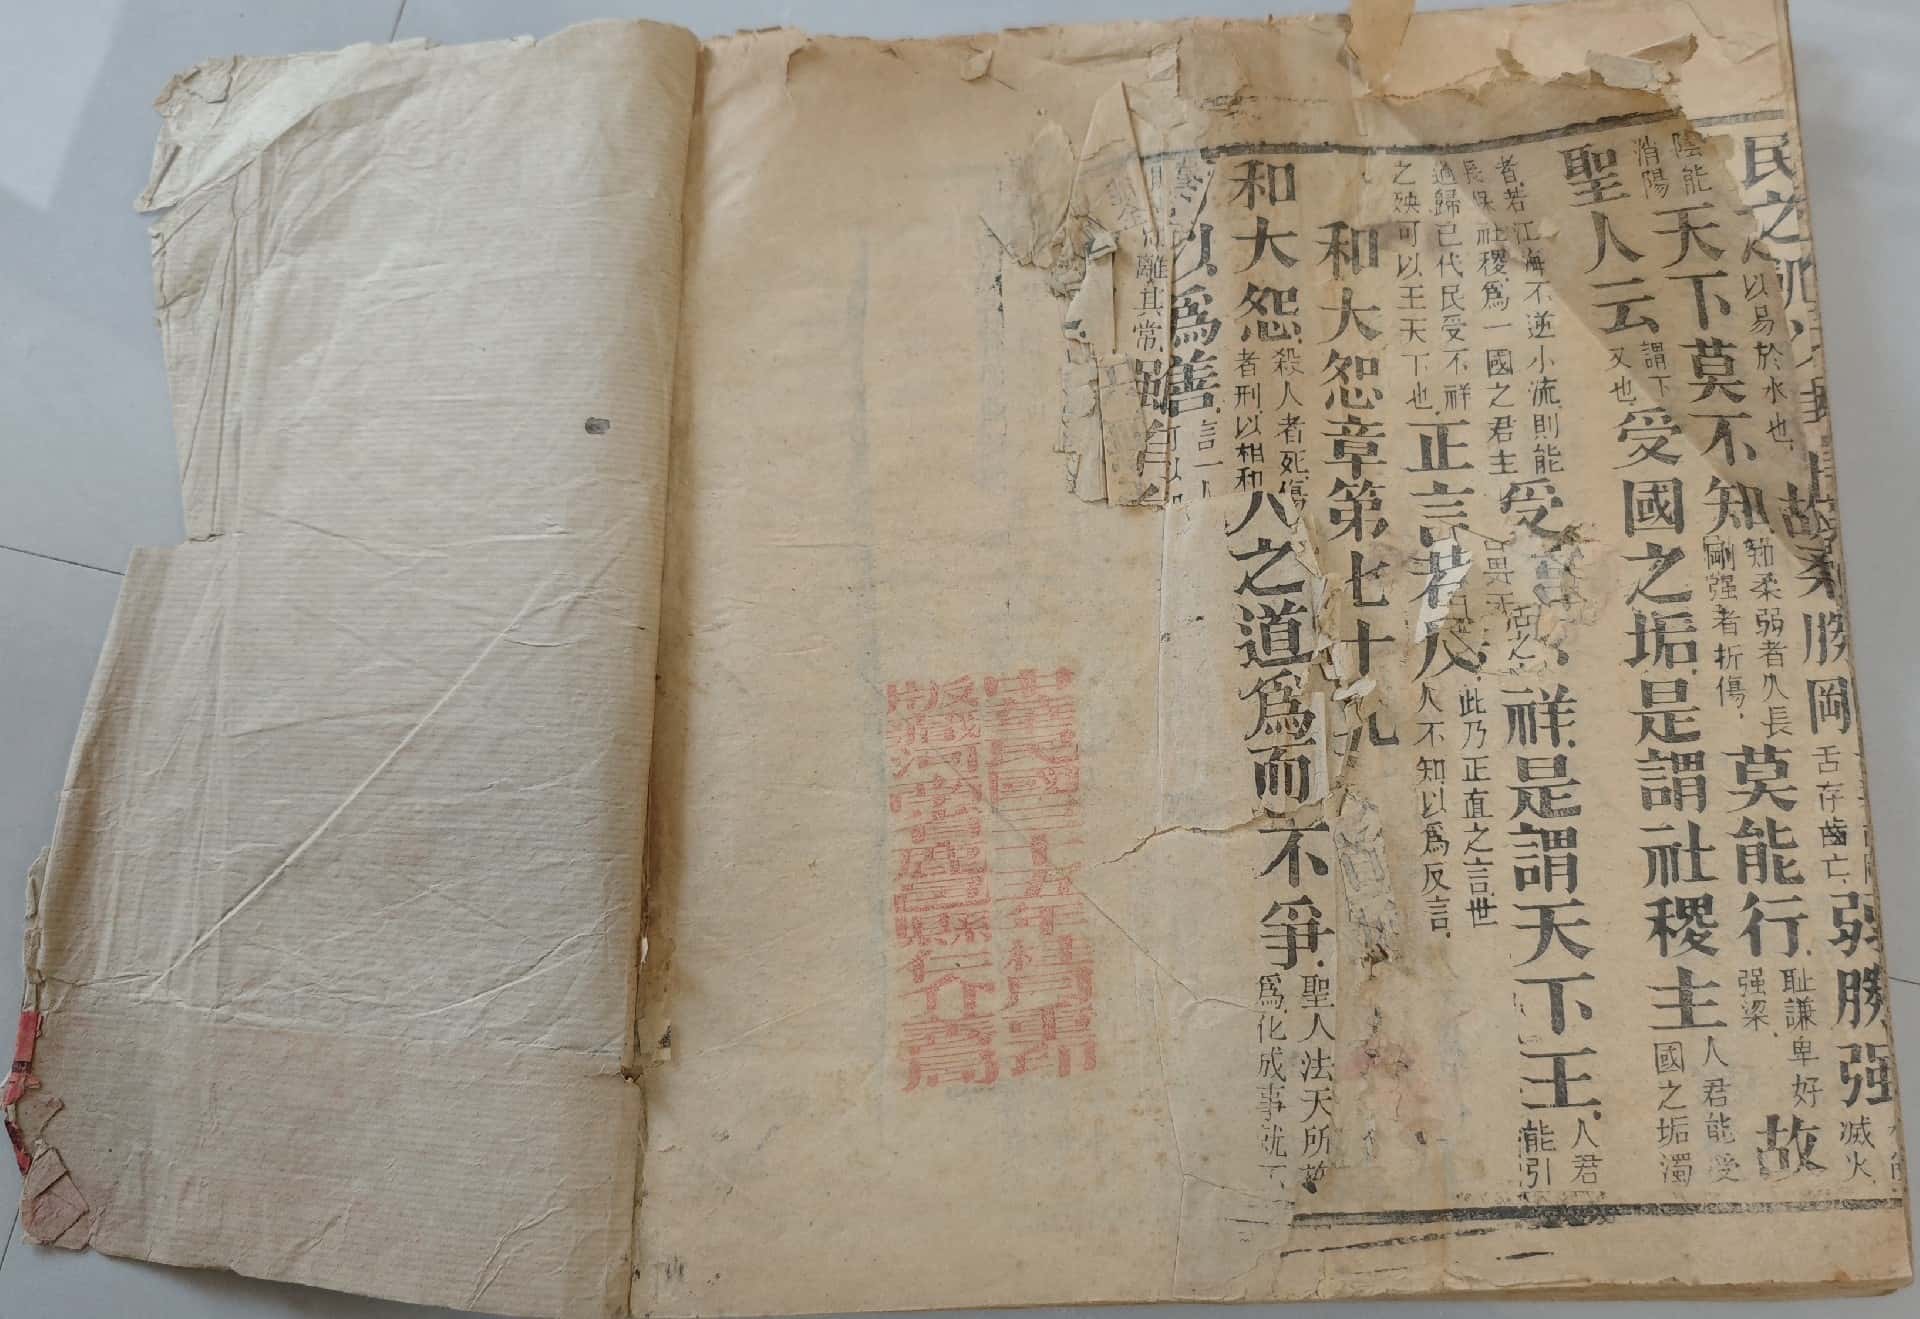 民之
以易於水也
故柔勝岡舌存齒亡弱勝强滅火
陰能消陽天下莫不知知柔弱者久長剛强者折傷莫能行耻謙卑好强梁故
聖人云謂下又也受國之垢是謂社稷主人君能受國之垢濁
者若江海不逆小流則能長保社稷爲一國之君主受祥是謂天下王人君能引
過歸己代民受不祥之殃可以王天下也正言若反此乃正直之言世人不知以爲反言
和大怨章第七十九
和大怨殺人者死傷者刑以相和人之道爲而不爭聖人法天所爲化成事就不
以爲善言一人可以
離其常雖
中華民國三十五年桂月重印
版藏河南省鹿邑縣仁介善局